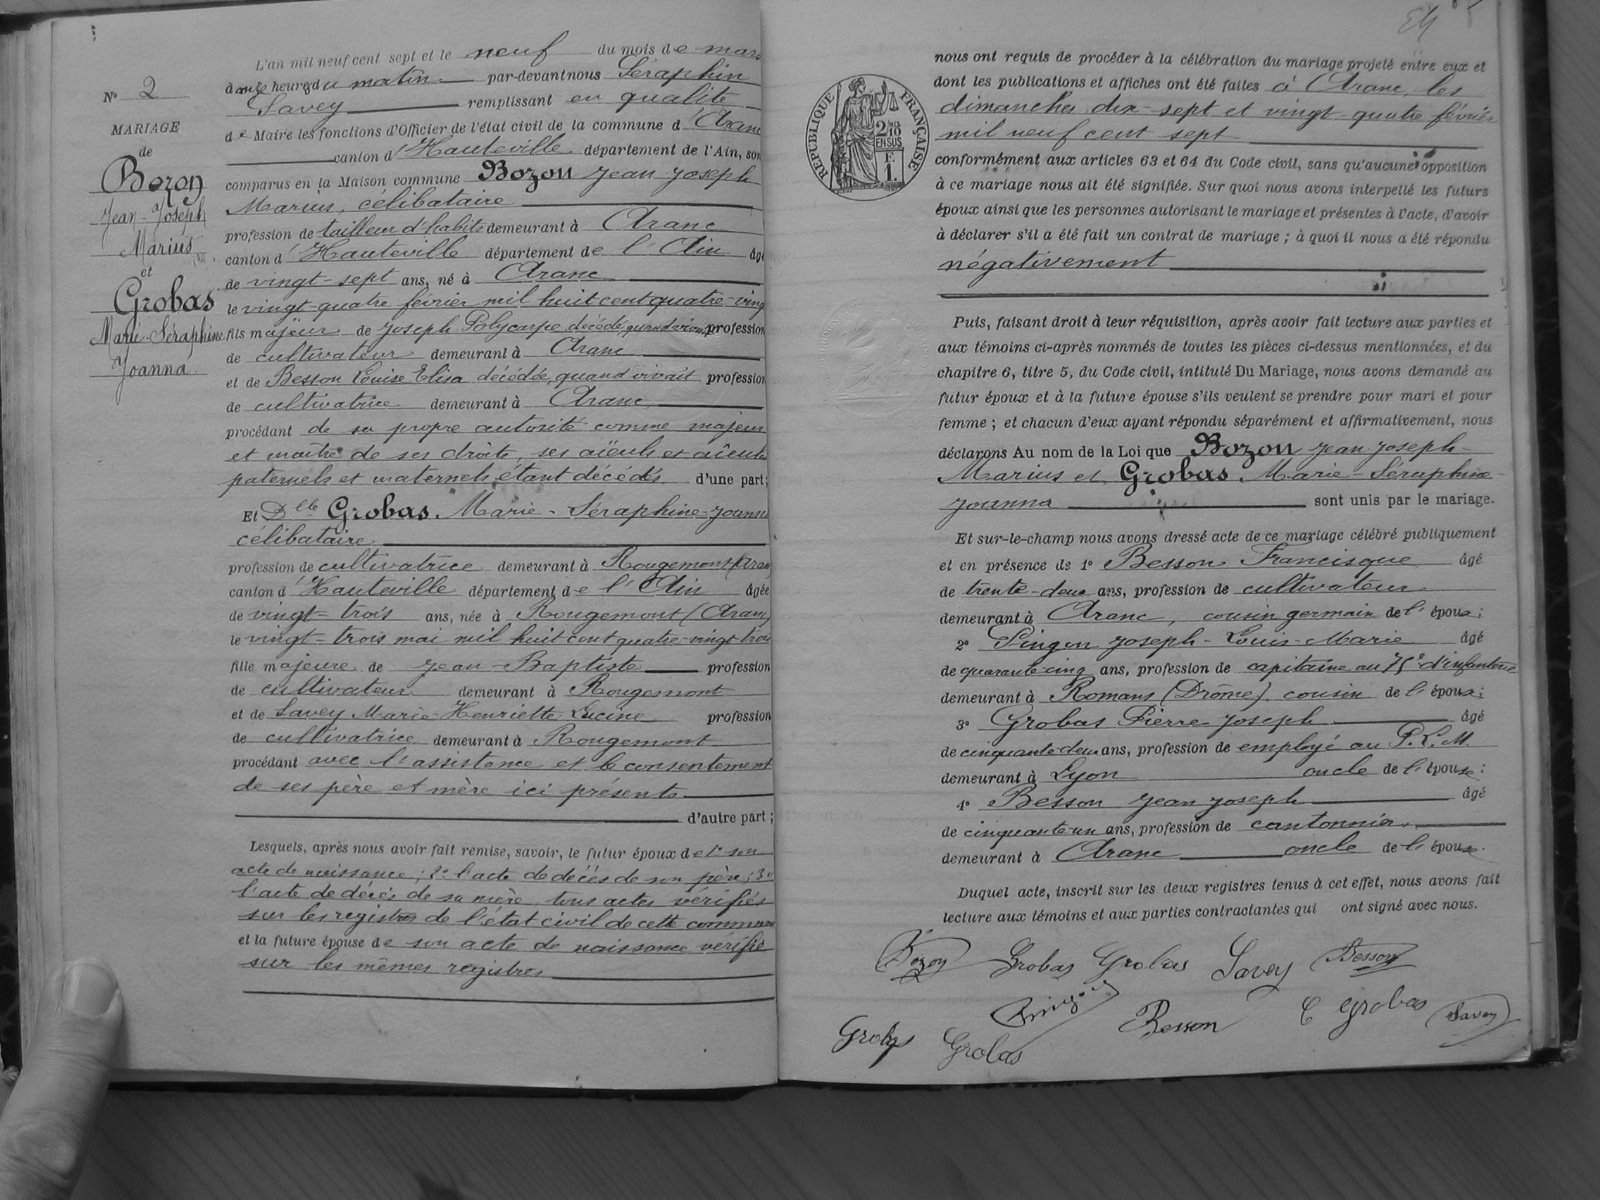 N° 2
MARIAGE
de
Bozon
Jean-Joseph
Marius
et
Grobas
Marie-Séraphine
Joanna
L'an mil neuf cent sept et le neuf du mois de mars
à onze heures du matin par-devant nous Séraphin
Savey remplissant en qualité
de Maire les fonctions d'Officier de l'état civil de la commune d'Aranc
canton d'Hauteville département de l'Ain, son
comparus en la Maison commune Bozon Jean Joseph
Marius, célibataire
profession de tailleur d'habits demeurant à Aranc
canton d'Hauteville département de l'Ain âgé
de vingt-sept ans, né à Aranc
le vingt-quatre février mil huit cent quatre-ving
fils majeur de Joseph Polycarpe décédé, quand vivait profession
de cultivateur demeurant à Aranc
et de Besson Louise Elisa décédée, quand vivait profession
de cultivatrice demeurant à Aranc
procédant de sa propre autorité comme majeur
et maître de ses droits, ses aïeuls et aïeules
paternels et maternels étant décédés d'une part;
Et Dlle Grobas Marie-Séraphine-Joanna
célibataire
profession de cultivatrice demeurant à Rougemont (Aran
canton d'Hauteville département de l'Ain âgée
de vingt-trois ans, née à Rougemont (Aranc)
le vingt-trois mai mil huit cent quatre-vingt trois
fille majeure de Jean-Baptiste profession
de cultivateur demeurant à Rougemont
et de Savey Marie-Henriette Lucine profession
de cultivatrice demeurant à Rougemont
procédant avec l'assistance et le consentement
de ses père et mère ici présents
d'autre part;
Lesquels, après nous avoir fait remise, savoir, le futur époux de 1° son
acte de naissance; 2° l'acte de décès de son père; 3°
l'acte de décès de sa mère tous actes vérifiés
sur les registres de l'état civil de cette commune
et la future épouse de son acte de naissance vérifié
sur les mêmes registres
RÉPUBLIQUE FRANÇAISE
2/10
EN SUS
F.
1.
nous ont requis de procéder à la célébration du mariage projeté entre eux et
dont les publications et affiches ont été faites à Aranc, les
dimanches dix-sept et vingt-quatre février
mil neuf cent sept
conformément aux articles 63 et 64 du Code civil, sans qu'aucune opposition
à ce mariage nous ait été signifiée. Sur quoi nous avons interpellé les futurs
époux ainsi que les personnes autorisant le mariage et présentes à l'acte, d'avoir
à déclarer s'il a été fait un contrat de mariage; à quoi il nous a été répondu
négativement
Puis, faisant droit à leur réquisition, après avoir fait lecture aux parties et
aux témoins ci-après nommés de toutes les pièces ci-dessus mentionnées, et du
chapitre 6, titre 5, du Code civil, intitulé Du Mariage, nous avons demandé au
futur époux et à la future épouse s'ils veulent se prendre pour mari et pour
femme; et chacun d'eux ayant répondu séparément et affirmativement, nous
déclarons Au nom de la Loi que Bozon Jean Joseph-
Marius et Grobas Marie-Séraphine-
Joanna sont unis par le mariage.
Et sur-le-champ nous avons dressé acte de ce mariage célébré publiquement
et en présence de 1° Besson Francisque âgé
de trente-deux ans, profession de cultivateur
demeurant à Aranc, cousin germain de l'époux;
2° Pingon Joseph-Louis-Marie âgé
de quarante-cinq ans, profession de capitaine au 75e d'infanterie
demeurant à Romans (Drôme) cousin de l'époux;
3° Grobas Pierre-Joseph âgé
de cinquante-deux ans, profession de employé au P.L.M.
demeurant à Lyon oncle de l'épouse;
4° Besson Jean Joseph âgé
de cinquante-un ans, profession de cantonnier
demeurant à Aranc oncle de l'époux.
Duquel acte, inscrit sur les deux registres tenus à cet effet, nous avons fait
lecture aux témoins et aux parties contractantes qui ont signé avec nous.
Bozon Grobas Grobas Savey Besson
Pingon Besson C Grobas Savey
Grobas Grobas